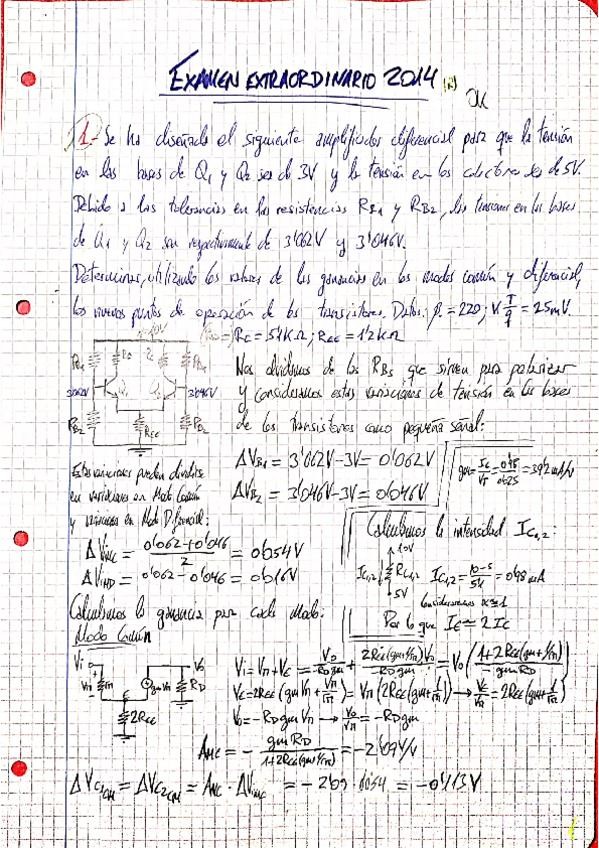 EXAMEN EXTRAORDINARIO 2014
OK
1.- Se ha diseñado el siguiente amplificador diferencial para que la tensión
en las bases de Q1 y Q2 sea de 3V y la tensión en los colectores sea de 5V.
Debido a las tolerancias en las resistencias RB1 y RB2, las tensiones en las bases
de Q1 y Q2 son respectivamente de 3'062V y 3'046V.
Determinar, utilizando los valores de las ganancias en los modos común y diferencial,
los nuevos puntos de operación de los transistores. Datos: β = 220; KT/q = 25mV.
RC = 5'1KΩ; REE = 1'2KΩ
10V
Nos olvidamos de las RBs que sirven para polarizar
y consideramos estas variaciones de tensión en las bases
de los transistores como pequeña señal:
RB1 RC RC RB1
3'062V Q1 Q2 3'046V
RB2 REE RB2
ΔVB1 = 3'062V-3V = 0'062V
ΔVB2 = 3'046V-3V = 0'046V
gm = IC/VT = 0'98/0'025 = 39'2mA/V
Estas variaciones pueden dividirse
en variaciones en Modo Común
y variaciones en Modo Diferencial:
ΔViMC = (0'062+0'046)/2 = 0'054V
ΔViMD = 0'062-0'046 = 0'016V
Calculamos la intensidad IC1,2:
10V
IC1,2 RC1,2
5V
IC1,2 = (10-5)/5'1 = 0'98mA
Consideramos α≈1
Por lo que IE ≃ 2IC
Calculamos la ganancia para cada Modo:
Modo Común
Vi Vπ rπ gmVπ RD Vo
2REE
Vi = Vπ+VE = Vo/-RDgm + 2REE(gm+1/rπ)Vo/-RDgm = Vo(1+2REE(gm+1/rπ)/-gmRD)
VE = 2REE(gmVπ + Vπ/rπ) = Vπ(2REE(gm+1/rπ)) → VE/Vπ = 2REE(gm+1/rπ)
Vo = -RDgmVπ → Vo/Vπ = -RDgm
AMC = - gmRD/(1+2REE(gm+1/rπ)) = -2'09V/V
ΔVC1CM = ΔVC2CM = AMC · ΔViMC = -2'09 · 0'054 = -0'113V